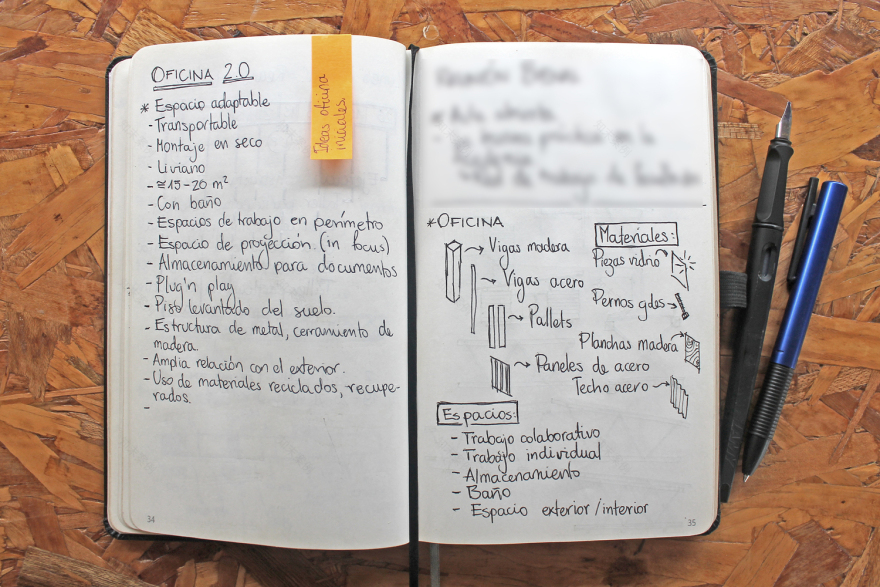 OFICINA 2.0
Ideas oficina
iniciales.
* Espacio adaptable
- Transportable
- Montaje en seco
- Liviano
- ≅ 15-20 m²
- Con baño
- Espacios de trabajo en perímetro
- Espacio de proyección (in focus)
- Almacenamiento para documentos
- Plug'n play
- Piso levantado del suelo.
- Estructura de metal, cerramiento de
madera.
- Amplia relación con el exterior.
- Uso de materiales reciclados, recupe-
rados.
-
34
* OFICINA
Vigas madera
Vigas acero
Pallets
Paneles de acero
Materiales:
Piezas vidrio
Pernos gdes
Planchas madera
Techo acero
Espacios:
- Trabajo colaborativo
- Trabajo individual
- Almacenamiento
- Baño
- Espacio exterior/interior
35